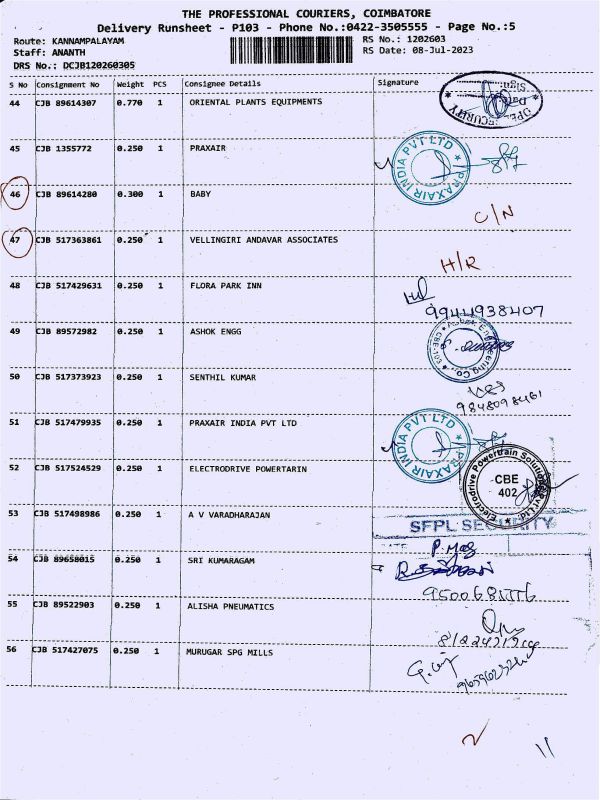 THE PROFESSIONAL COURIERS, COIMBATORE
Delivery Runsheet - P103 - Phone No.:0422-3505555 - Page No.:5
Route: KANNAMPALAYAM RS No.: 1202603
Staff: ANANTH RS Date: 08-Jul-2023
DRS No.: DCJB120260305
S No Consignment No Weight PCS Consignee Details Signature
44 CJB 89614307 0.770 1 ORIENTAL PLANTS EQUIPMENTS
45 CJB 1355772 0.250 1 PRAXAIR
PRAXAIR INDIA PVT LTD
46 CJB 89614280 0.300 1 BABY
C/N
47 CJB 517363861 0.250 1 VELLINGIRI ANDAVAR ASSOCIATES
H/R
48 CJB 517429631 0.250 1 FLORA PARK INN
9944938407
49 CJB 89572982 0.250 1 ASHOK ENGG
50 CJB 517373923 0.250 1 SENTHIL KUMAR
51 CJB 517479935 0.250 1 PRAXAIR INDIA PVT LTD
PRAXAIR INDIA PVT LTD
52 CJB 517524529 0.250 1 ELECTRODRIVE POWERTARIN
CBE
402
53 CJB 517498986 0.250 1 A V VARADHARAJAN
SFPL SECURITY
54 CJB 89658015 0.250 1 SRI KUMARAGAM
55 CJB 89522903 0.250 1 ALISHA PNEUMATICS
56 CJB 517427075 0.250 1 MURUGAR SPG MILLS
2
11